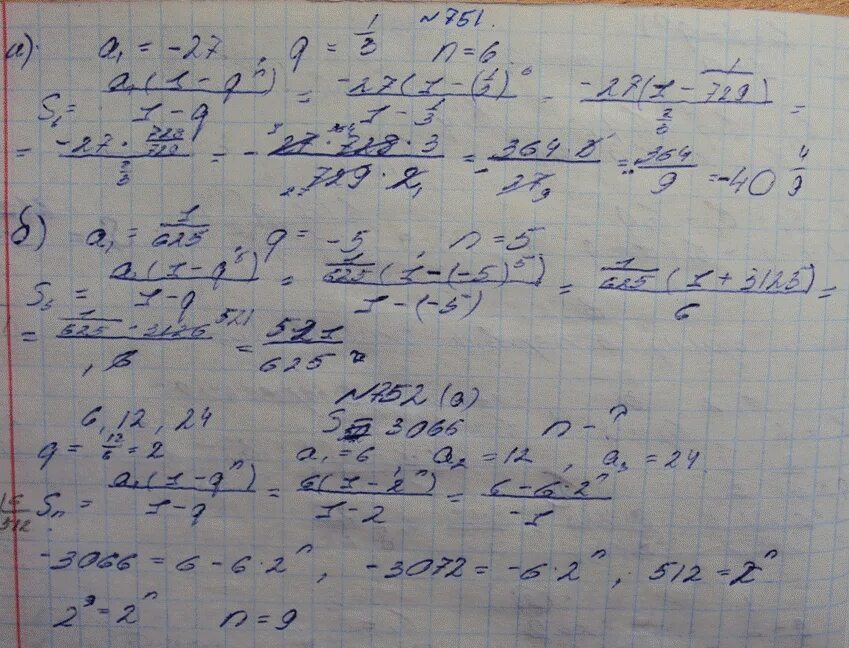 №751.
а). a₁ = -27, q = 1/3 n = 6.
S₆ = a₁(1-qⁿ)/1-q = -27(1-(1/3)⁶/1-1/3 = -27(1-1/729)/2/3 =
= -27·728/729/2/3 = - 27·728·3/729·2 = - 364·2/27 = - 364/9 = -40 4/9
б) a₁ = 1/625, q = -5, n = 5
S₅ = a₁(1-q⁵)/1-q = 1/625(1-(-5)⁵)/1-(-5) = 1/625(1+3125)/6 =
= 1/625·3126 521/6 = 521/625
№752 (а)
6, 12, 24 S 3066 n - ?
q = 12/6 = 2 a₁ = 6, a₂ = 12, a₃ = 24.
Sₙ = a₁(1-qⁿ)/1-q = 6(1-2ⁿ)/1-2 = 6-6·2ⁿ/-1
-3066 = 6-6·2ⁿ, -3072 = -6·2ⁿ; 512 = 2ⁿ
2⁹ = 2ⁿ n = 9